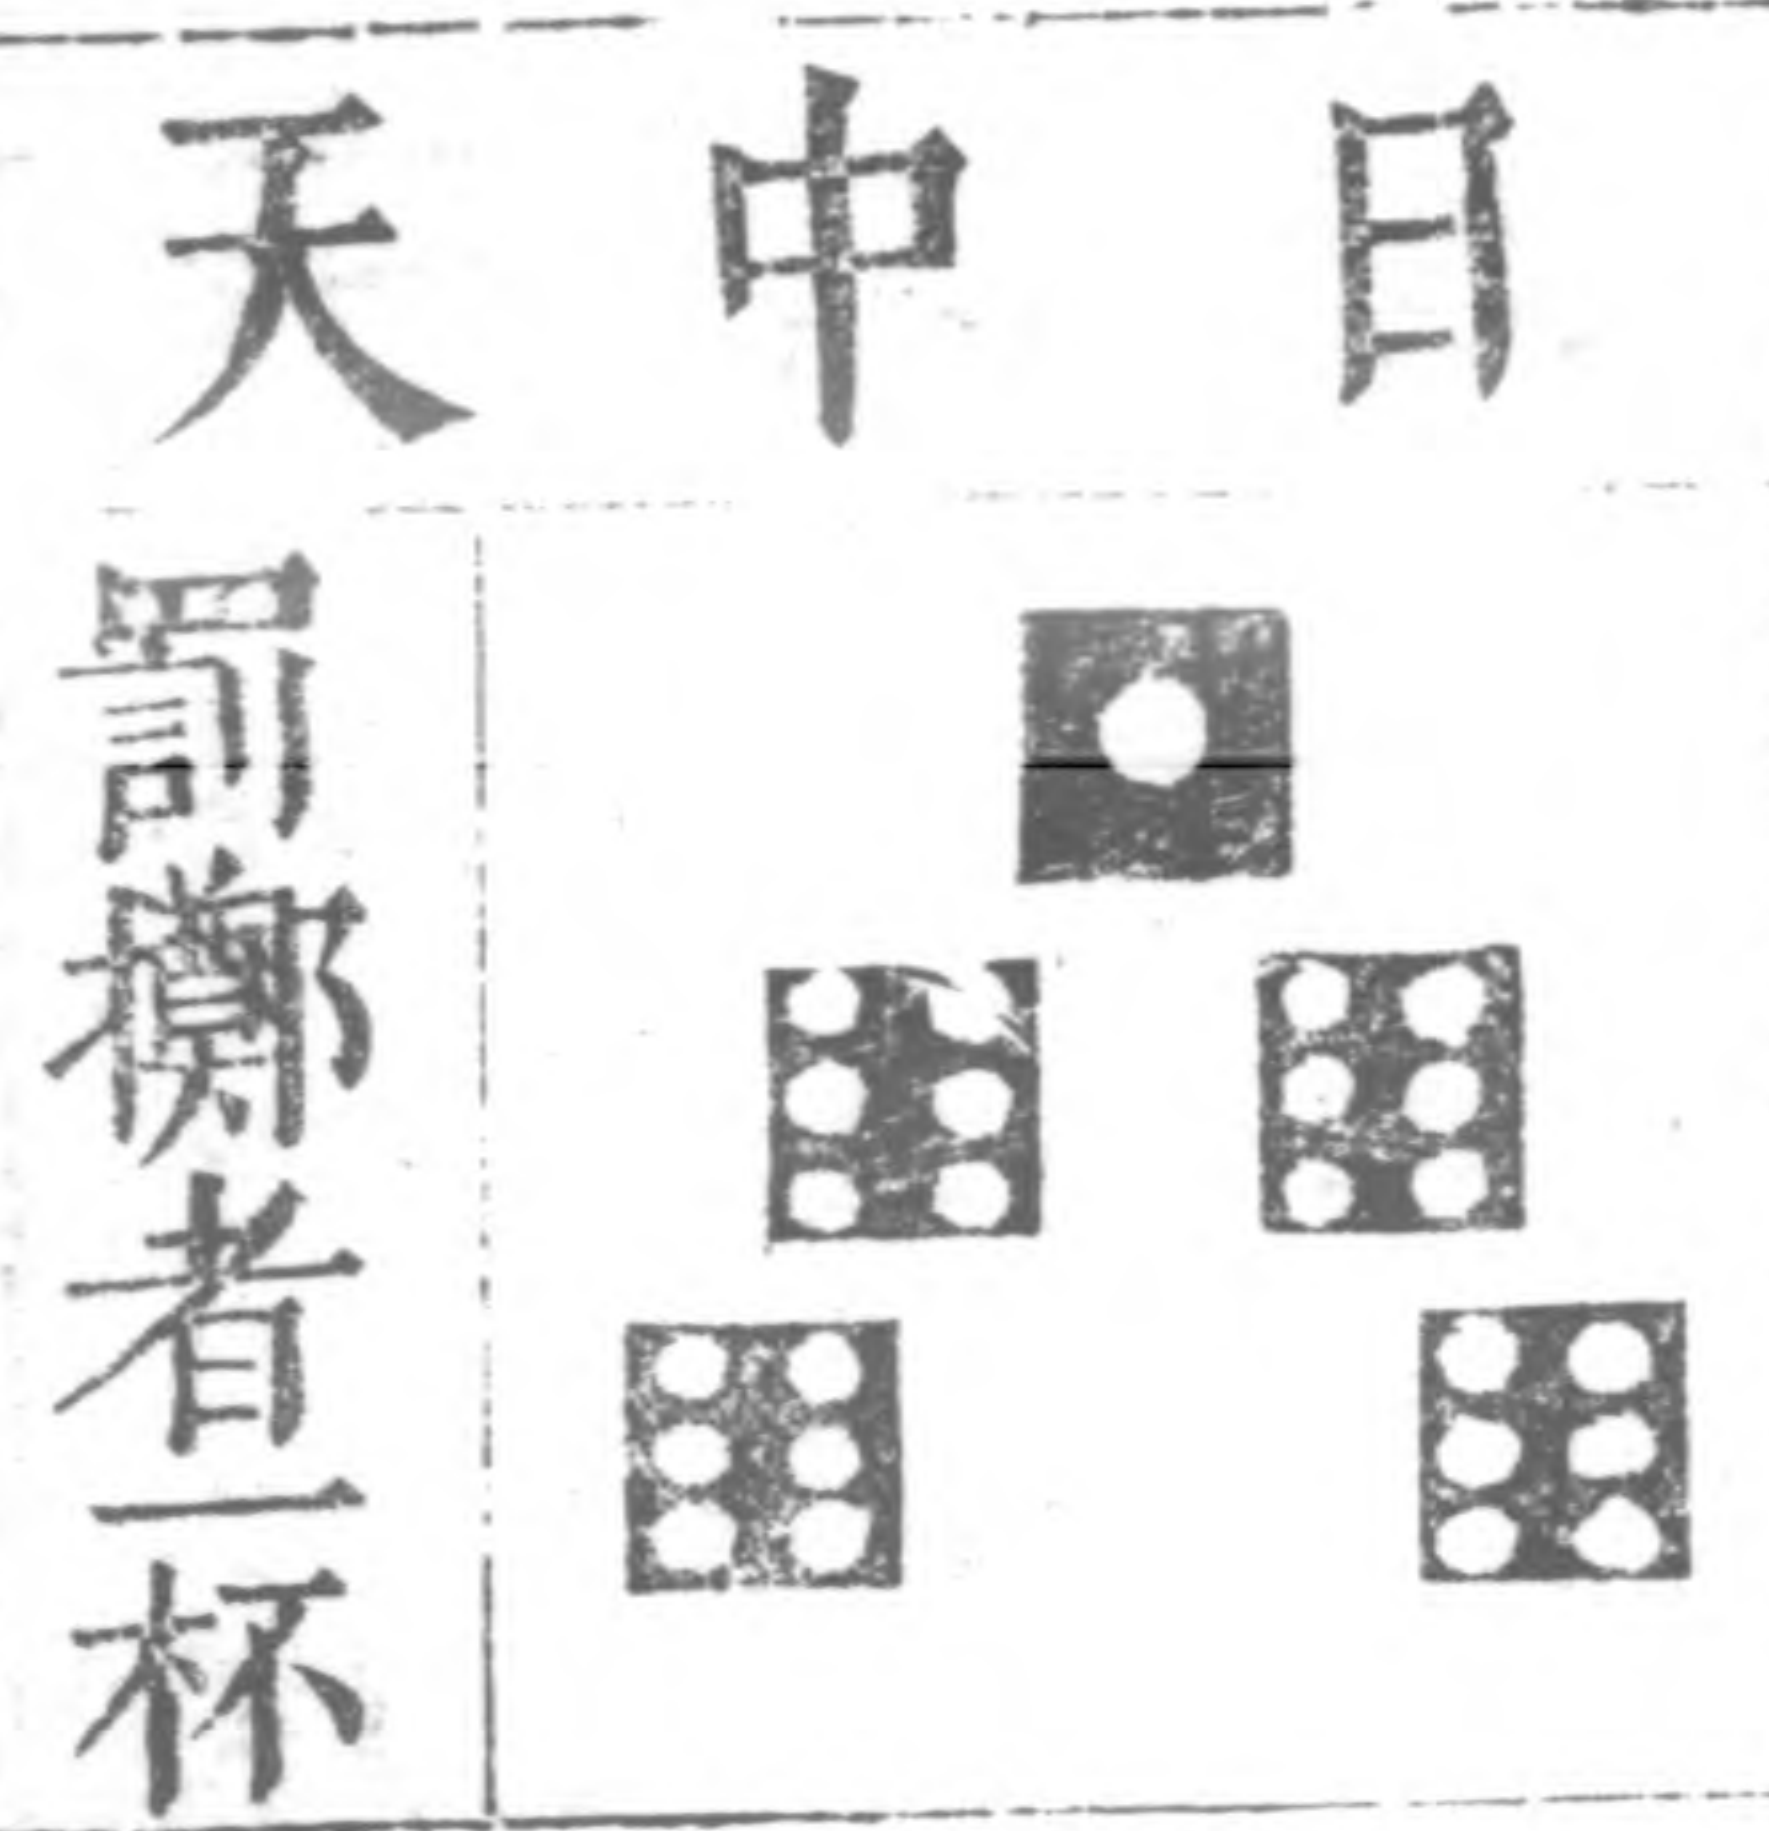 日中天
罰擲者一杯